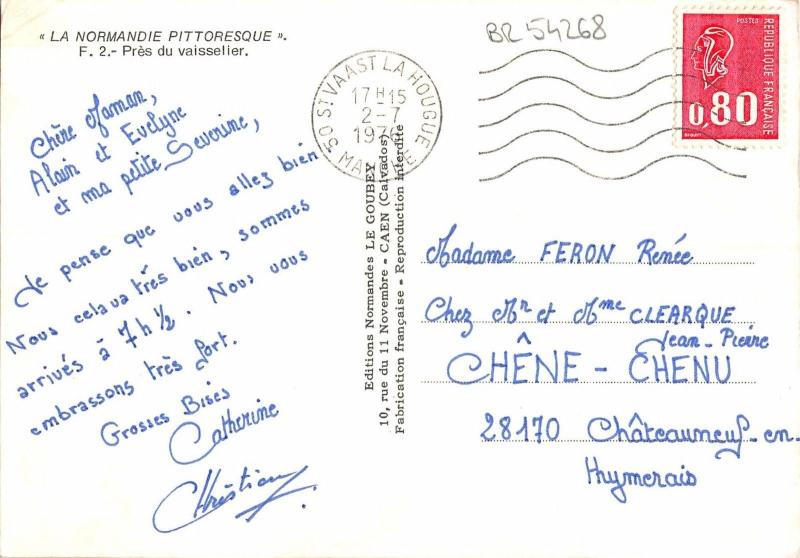 « LA NORMANDIE PITTORESQUE ».
F. 2.- Près du vaisselier.
Chère Maman,
Alain et Evelyne
et ma petite Severine,
Je pense que vous allez bien
Nous celava très bien, sommes
arrivés à 7h 1/2. Nous vous
embrassons très fort.
Grosses Bises
Catherine
Christian
Editions Normandes LE GOUBEY
10, rue du 11 Novembre - CAEN (Calvados)
Fabrication française - Reproduction interdite
BR 54268
50 ST VAAST LA HOUGUE
17 H 15
2-7
MANCHE
POSTES
REPUBLIQUE FRANÇAISE
0,80
BEQUET
Madame FERON Renée
Chez Mr et Mme CLEARQUE
Jean-Pierre
CHÊNE - CHENU
28170 Châteauneuf-en-
Thymerais